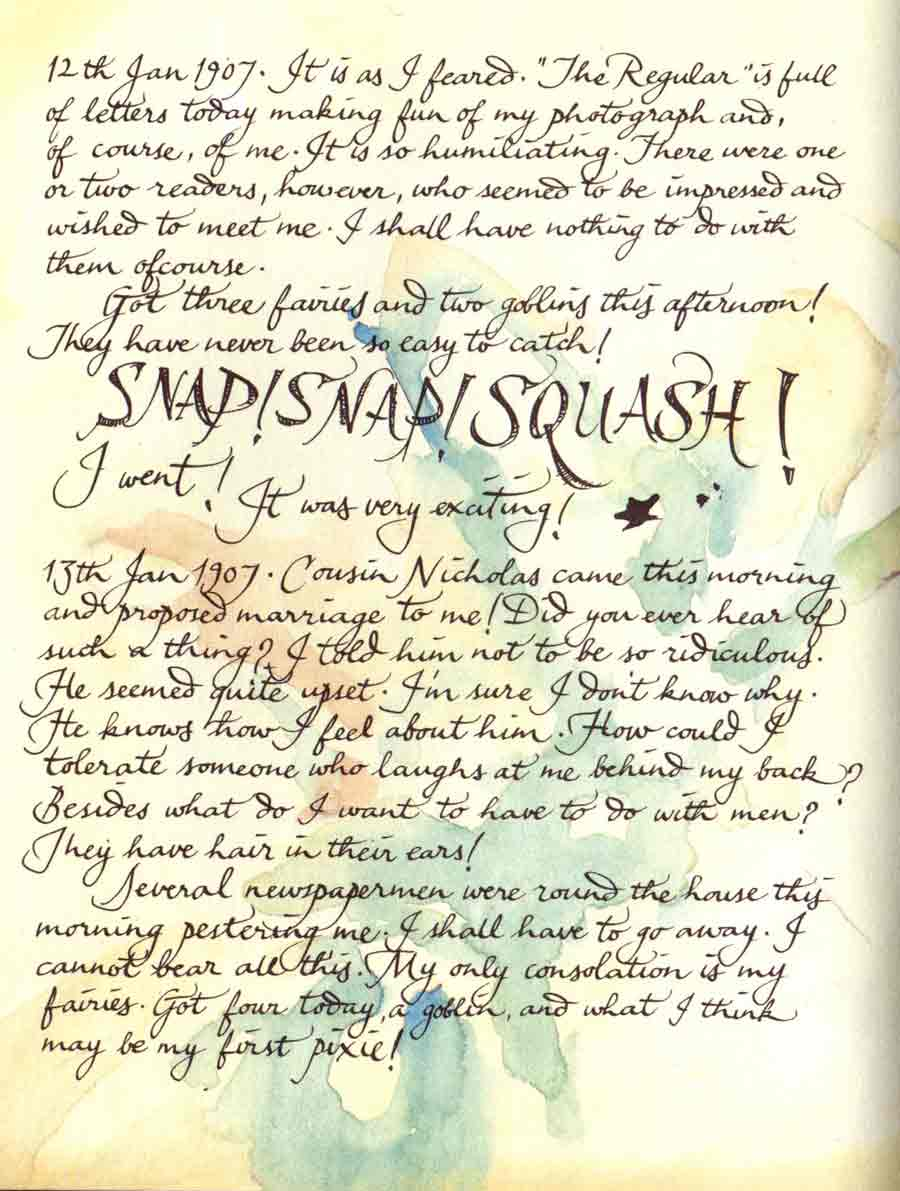 12th Jan 1907. It is as I feared. "The Regular" is full
of letters today making fun of my photograph and,
of course, of me. It is so humiliating. There were one
or two readers, however, who seemed to be impressed and
wished to meet me. I shall have nothing to do with
them ofcourse.
Got three fairies and two goblins this afternoon!
They have never been so easy to catch!
SNAP! SNAP! SQUASH!
I went!
It was very exciting!
13th Jan 1907. Cousin Nicholas came this morning
and proposed marriage to me! Did you ever hear of
such a thing? I told him not to be so ridiculous.
He seemed quite upset. I'm sure I don't know why.
He knows how I feel about him. How could I
tolerate someone who laughs at me behind my back?
Besides what do I want to have to do with men?
They have hair in their ears!
Several newspapermen were round the house this
morning pestering me. I shall have to go away. I
cannot bear all this. My only consolation is my
fairies. Got four today, a goblin, and what I think
may be my first pixie!